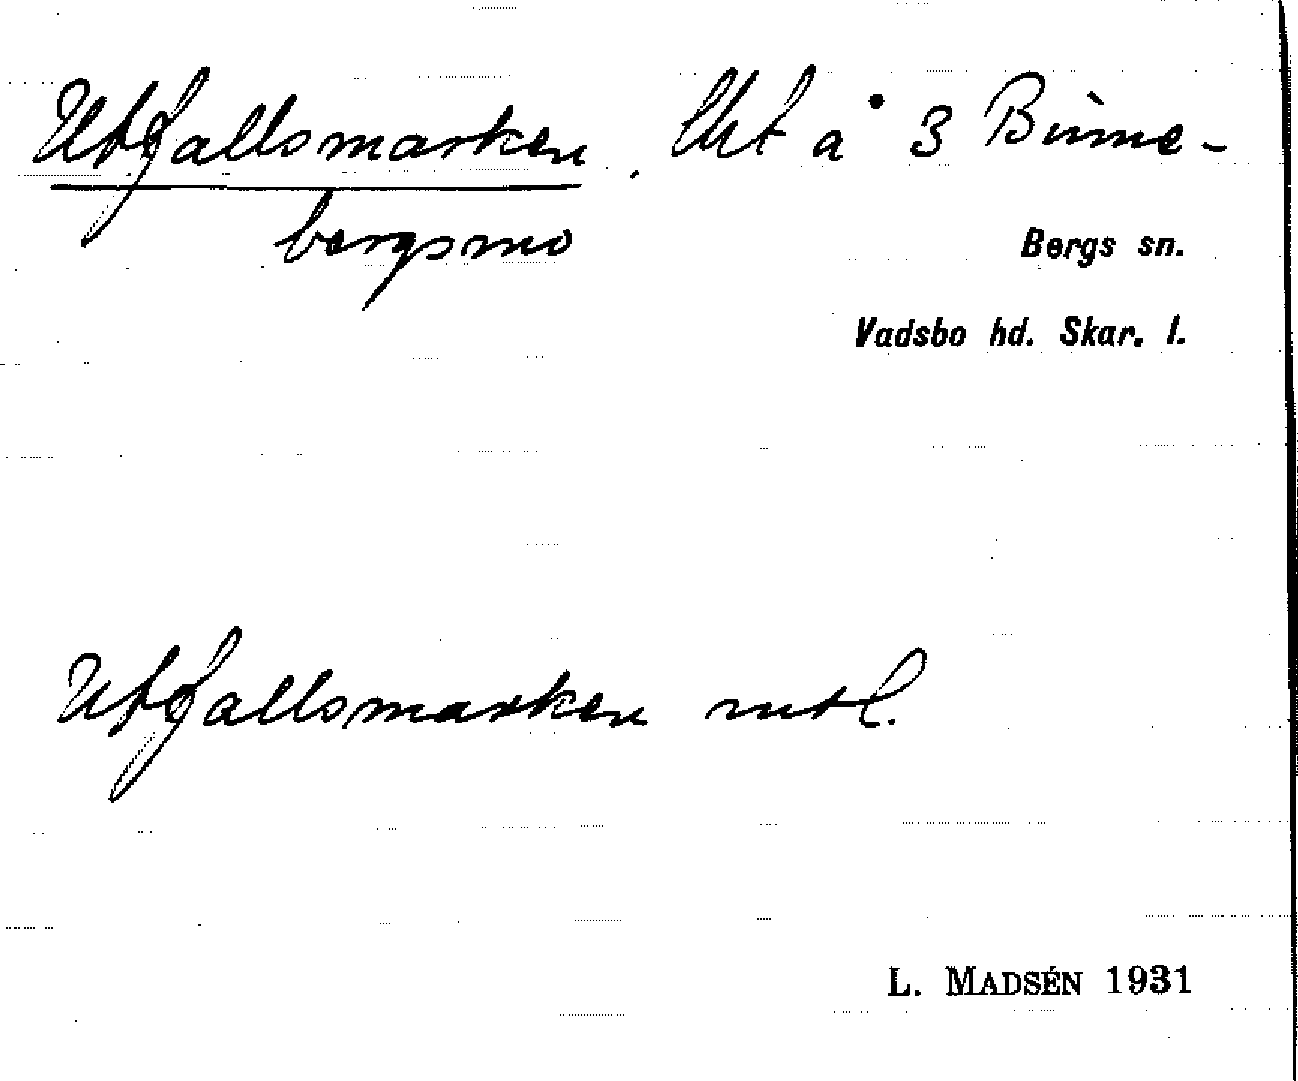 Utfallsmarken. Lht å 3 Binne-
bergsmo
Bergs sn.
Vadsbo hd. Skar. l.
Utfallsmarken mtl.
L. MADSÉN 1931